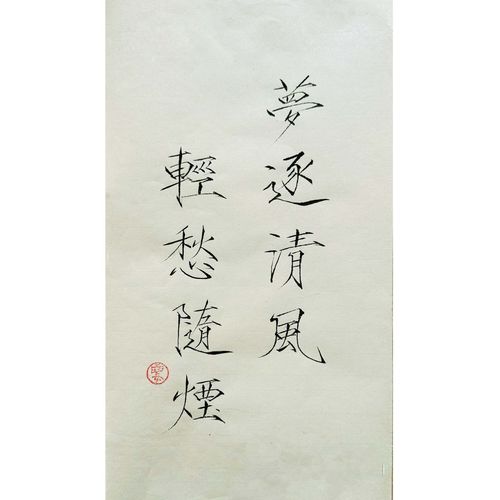 夢逐清風
輕愁隨煙